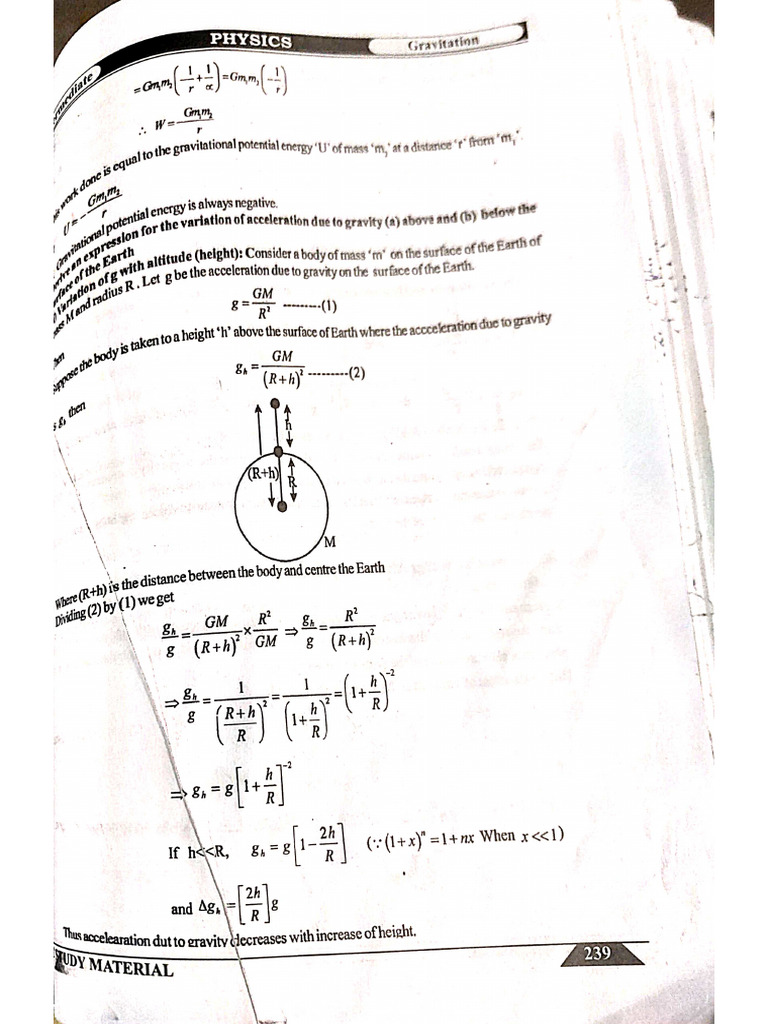 PHYSICS
Gravitation
= Gm₁m₂(-1/r + 1/∝) = Gm₁m₂(-1/r)
∴ W = - Gm₁m₂/r
work done is equal to the gravitational potential energy ‘U’ of mass ‘m₂’ at a distance ‘r’ from ‘m₁’.
U = - Gm₁m₂/r
Gravitational potential energy is always negative.
an expression for the variation of acceleration due to gravity (a) above and (b) below the
of the Earth
Variation of g with altitude (height): Consider a body of mass ‘m’ on the surface of the Earth of
M and radius R . Let g be the acceleration due to gravity on the surface of the Earth.
g = GM/R² ---------(1)
the body is taken to a height ‘h’ above the surface of Earth where the accceleration due to gravity
gₕ, then
gₕ = GM/(R+h)² ----------(2)
h
(R+h)
R
M
Where (R+h) is the distance between the body and centre the Earth
Dividing (2) by (1) we get
gₕ/g = GM/(R+h)² × R²/GM ⇒ gₕ/g = R²/(R+h)²
⇒ gₕ/g = 1/((R+h)/R)² = 1/(1+h/R)² = (1+h/R)⁻²
⇒ gₕ = g[1+h/R]⁻²
If h<<R, gₕ = g[1-2h/R] (∵ (1+x)ⁿ = 1+nx When x <<1)
and Δgₕ = [2h/R]g
Thus accelearation dut to gravity decreases with increase of height.
STUDY MATERIAL
239